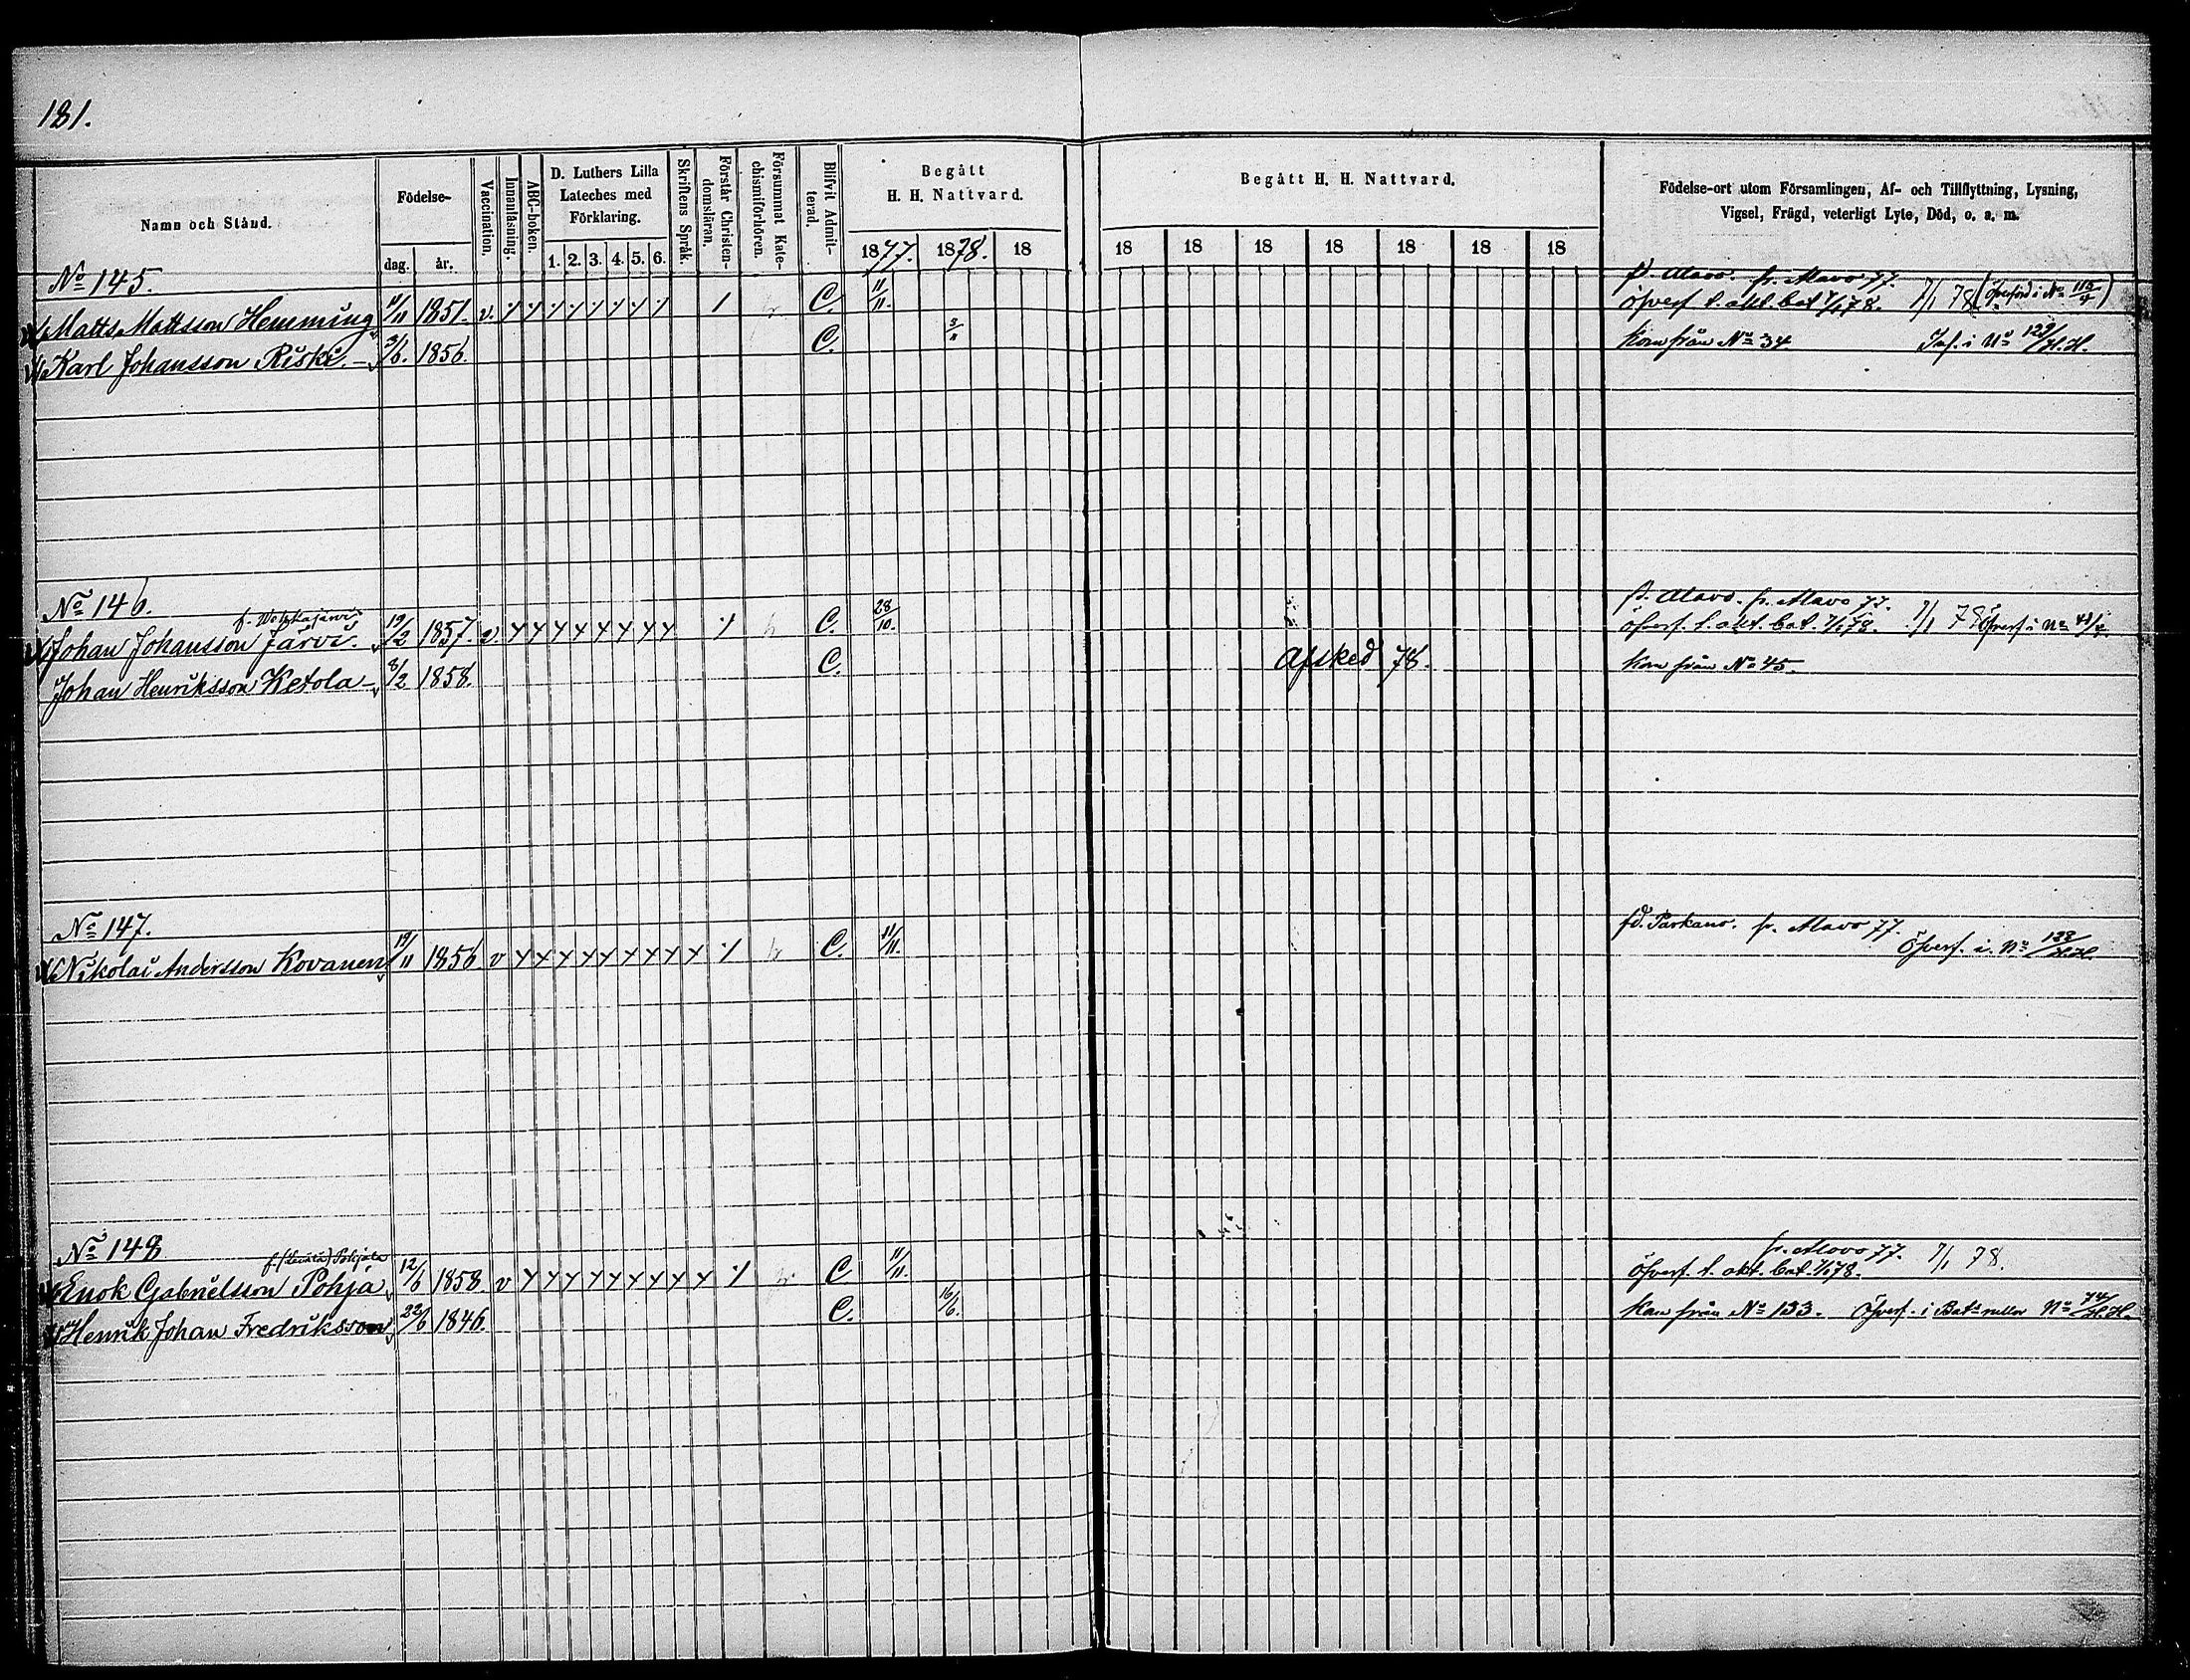 181.
Namn och Stånd.
Födelse-
dag. år.
Vaccination.
Innanläsning.
ABC-boken.
D. Luthers Lilla
Lateches med
Förklaring.
1. 2. 3. 4. 5. 6.
Skriftens Språk.
Förstår Christen-
domsläran.
Försummat Kate-
chismiförhören.
Blifvit Admit-
terad.
Begått
H. H. Nattvard.
1877. 1878. 18
Begått H. H. Nattvard.
18 18 18 18 18 18 18
Födelse-ort utom Församlingen, Af- och Tillflyttning, Lysning,
Vigsel, Frägd, veterligt Lyte, Död, o. a. m.
No 145.
fd. Alavo. fr. Alavo 77.
Matts Mattsson Hemming 11/11 1851. v. C. 11/11. Öfverf. t. akt. bat. 1/1 78. 7/1 78 (Öfverförd i No 115/4)
Karl Johansson Riski. 3/6. 1856. C. Kom från No 34 Inf. i No 129/H.H.
No 146.
fd. Alavo. fr. Alavo 77.
Johan Johansson Järvi. 19/2 1857. v. C. 28/10. öfverf. t. akt. bat. 1/1 78. 7/1 78 Öfverf. i No
Johan Henriksson Ketola 8/2 1858. C. Afsked 78. Kom från No 45.
No 147.
fd. Parkano. fr. Alavo 77.
Nikolai Andersson Kovanen 19/11 1856. v C. 11/11. Öfverf. i. No 128/H.H.
No 148
f. Pohjola
fr. Alavo 77. 7/1 78.
Enok Gabrielsson Pohja 12/6 1858. v C 11/11. Öfverf. t. akt. bat. 1/1 78.
Henrik Johan Fredriksson 22/6 1846. C. 16/6. Kom från No 133. Öfverf. i Bat:s rullor No 74/H.H.